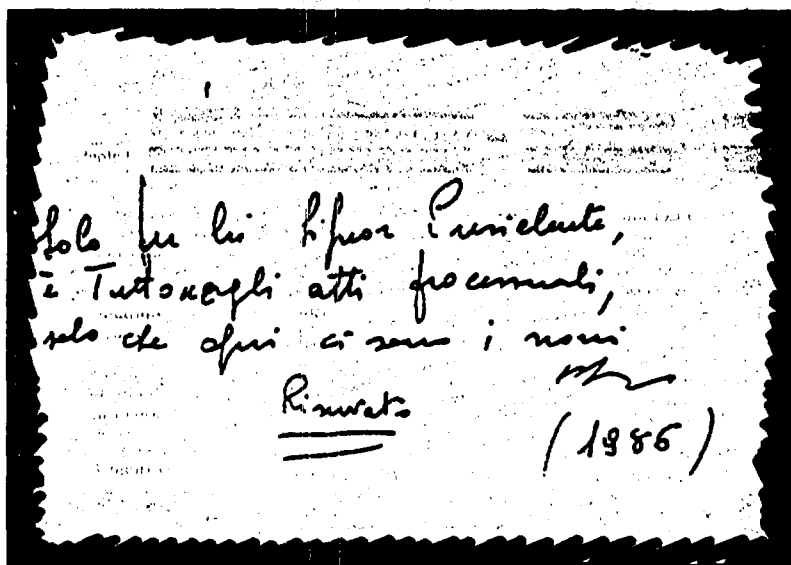 Solo per lei Signor Presidente,
è Tutto negli atti processuali,
solo che qui ci sono i nomi
Riservato
(1986)